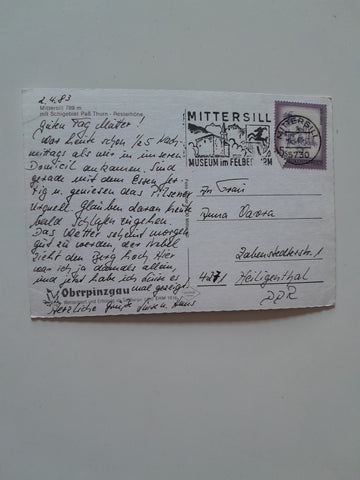 2.4.83
Mittersill 789 m
mit Schigebiet Paß Thurn - Resterhöhe
Guten Tag Mutter!
Was heute schon 1/5 Nach-
mittags als wir in unserem
Domizil ankamen. Sind
gerade mit dem Essen fer-
tig u. geniesen das Pilsener
Urquell. Glauben daran heute
bald schlafen zu gehen.
Das Wetter scheint morgen
gut zu werden, der Nebel
zieht den Berg hoch. Hier
war ich ja damals allein,
und jetzt habe ich dies es
mal gezeigt.
Oberpinzgau
Herzliche Grüße
Hans
MITTERSILL
MUSEUM im FELBERTURM
MITTERSILL
5730
An Frau
Anna
Zabenstedterstr. 1
4271 Heiligenthal
DDR